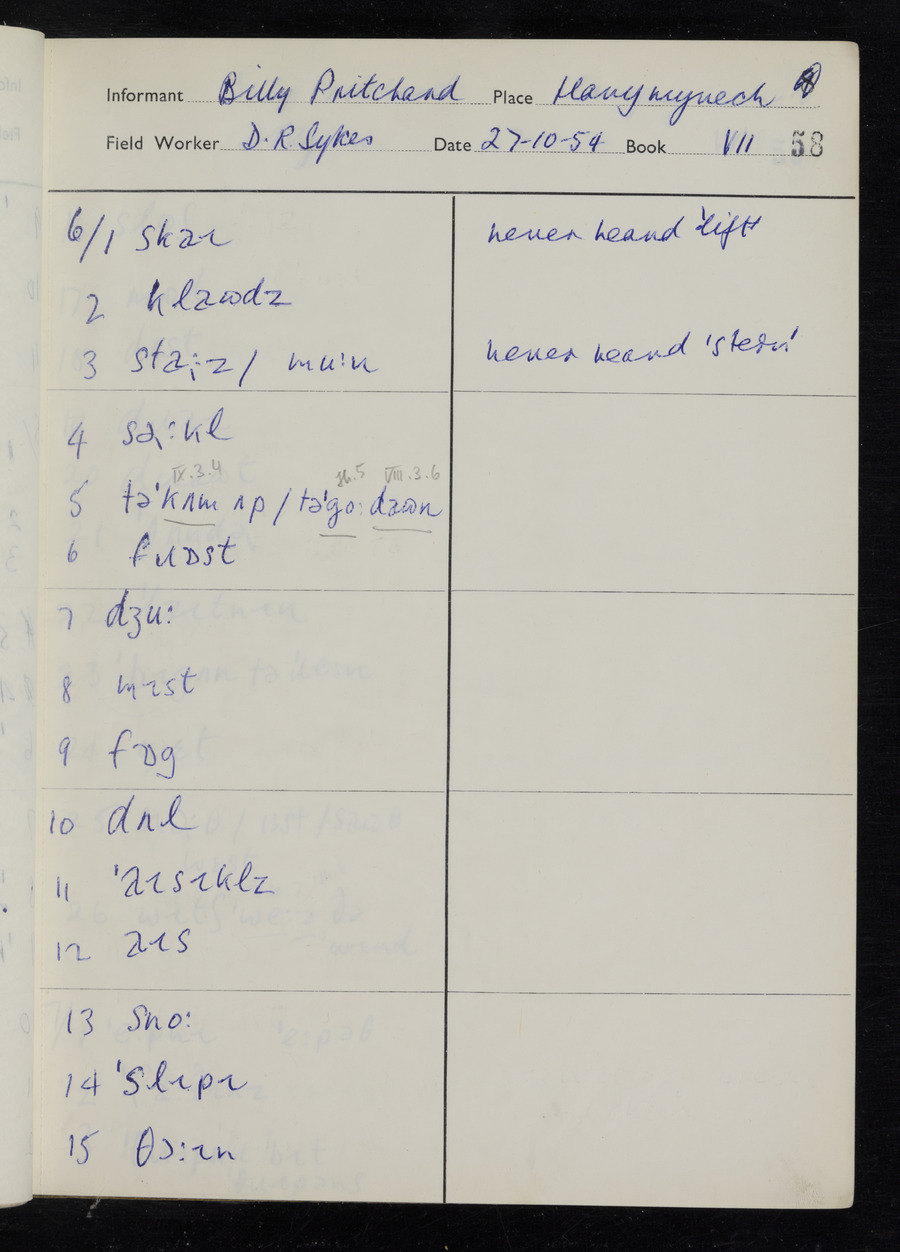 Informant Billy Pritchard Place Llanymynech 8
Field Worker D.R. Sykes Date 27-10-54 Book VII 58
6/1 skəɪ never heard 'lift'
2 kləʊdz
3 stə:z / mu:n never heard 'stern'
4 sə:kl
IX.3.4 sh.5 VIII.3.6
5 tə'kʌm ʌp / tə'go: dəʊn
6 fɹɒst
7 dʒu:
8 mɪst
9 fɒg
10 dʌl
11 'əɪsɪklz
12 əɪs
13 sno:
14 'slɪpɪ
15 θɔ:ɪn